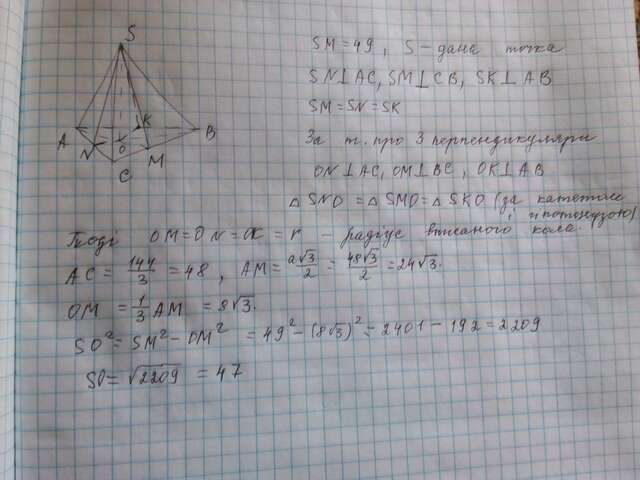 S
A
N
O
K
B
C
M
SM = 49, S - дана точка
SN⊥AC, SM⊥CB, SK⊥AB
SM = SN = SK
За т. про 3 перпендикуляри
ON⊥AC, OM⊥BC, OK⊥AB
△SNO = △SMO = △SKO (за катетом
і гіпотенузою)
Тоді OM = ON = OK = r - радіус вписаного кола.
AC = 144/3 = 48, AM = a√3/2 = 48√3/2 = 24√3.
OM = 1/3 AM = 8√3.
SO² = SM² - OM² = 49² - (8√3)² = 2401 - 192 = 2209
SO = √2209 = 47